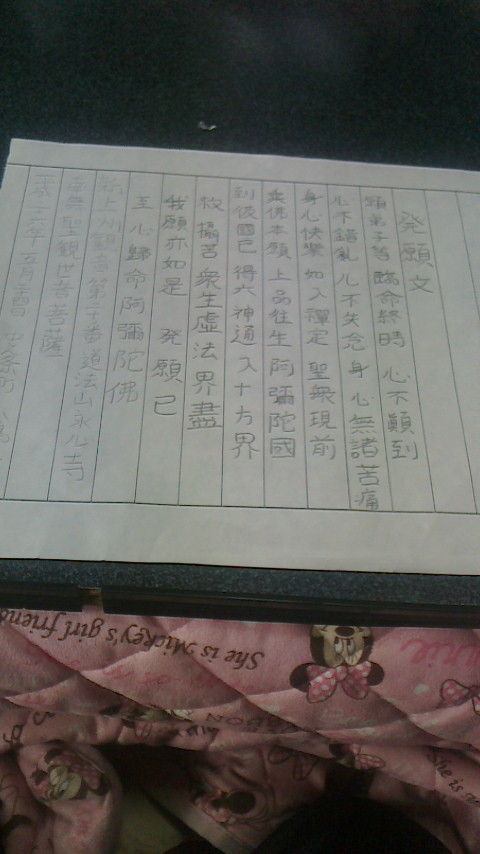 発願文
願弟子等 臨命終時 心不顛到
心不錯乱 心不失念 身心無諸苦痛
身心快樂 如入禪定 聖衆現前
乘佛本願 上品往生 阿彌陀國
到彼國已 得六神通 入十方界
救攝苦衆生虚法界盡
我願亦如是 発願已
至心歸命阿彌陀佛
新上州観音第十番 道法山永心寺
南無聖観世音菩薩
五月
She is Mickey's girl friend
She is